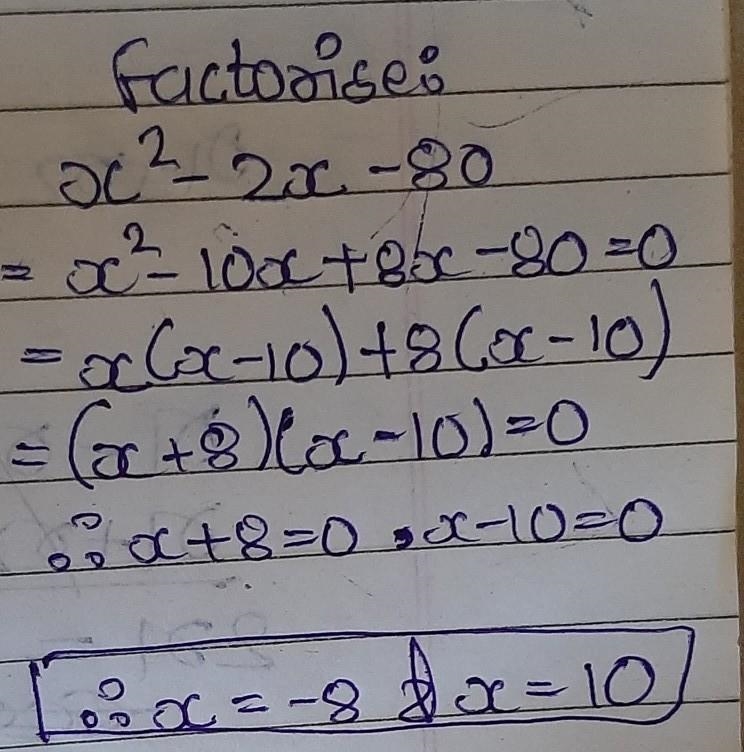 Factorise:
x² - 2x - 80
= x² - 10x + 8x - 80 = 0
= x(x - 10) + 8(x - 10)
= (x + 8)(x - 10) = 0
∴ x + 8 = 0 , x - 10 = 0
∴ x = -8 & x = 10